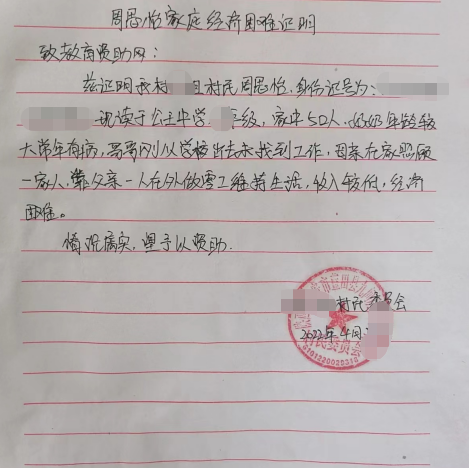 周思怡家庭经济困难证明
致教育资助网：
兹证明我村 组村民周思怡，身份证号为：
现读于公主中学 年级，家中5口人，奶奶年龄较
大常年有病，哥哥刚从学校出去未找到工作，母亲在家照顾
一家人，靠父亲一人在外做零工维持生活，收入较低，经济
困难。
情况属实，望予以资助.
村民委员会
2022年4月